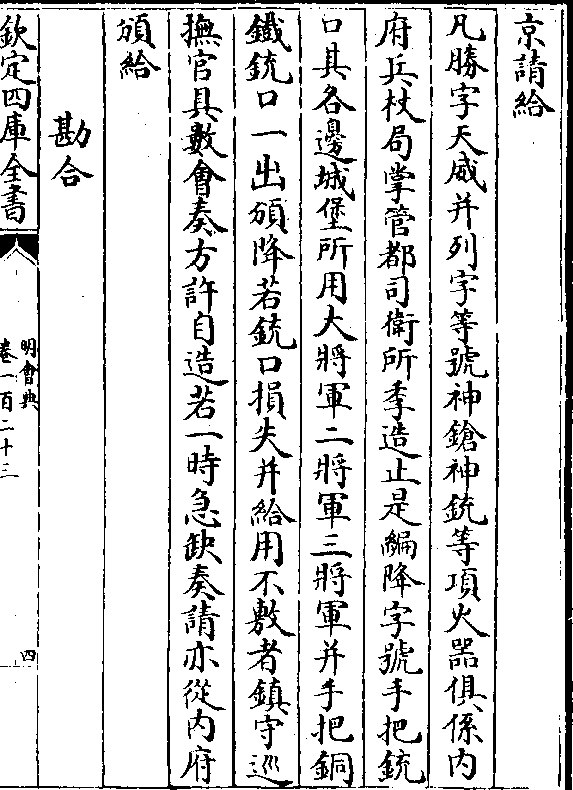 京請給
凡勝字天威并列字等號神鎗神銃等項火器俱係内
府兵杖局掌管都司衛所季造止是編降字號手把銃
口其各邊城堡所用大將軍二將軍三將軍并手把銅
鐵銃口一出頒降若銃口損失并給用不敷者鎮守巡
撫官具數會奏方許自造若一時急缺奏請亦從内府
頒給
勘合
欽定四庫全書
明會典
卷一百二十三
四